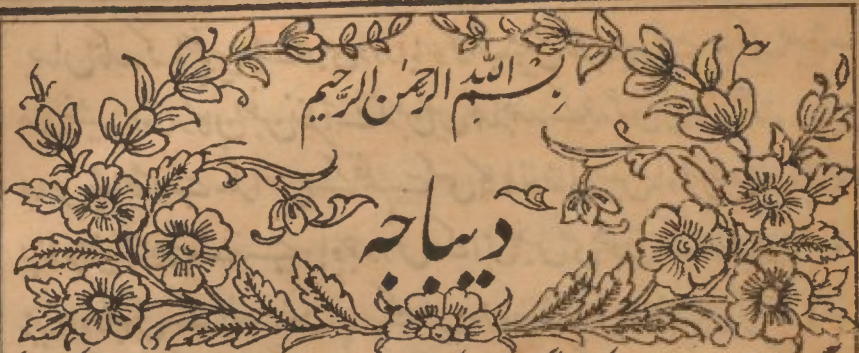 بسم الله الرحمٰن الرحیم
دیباچہ